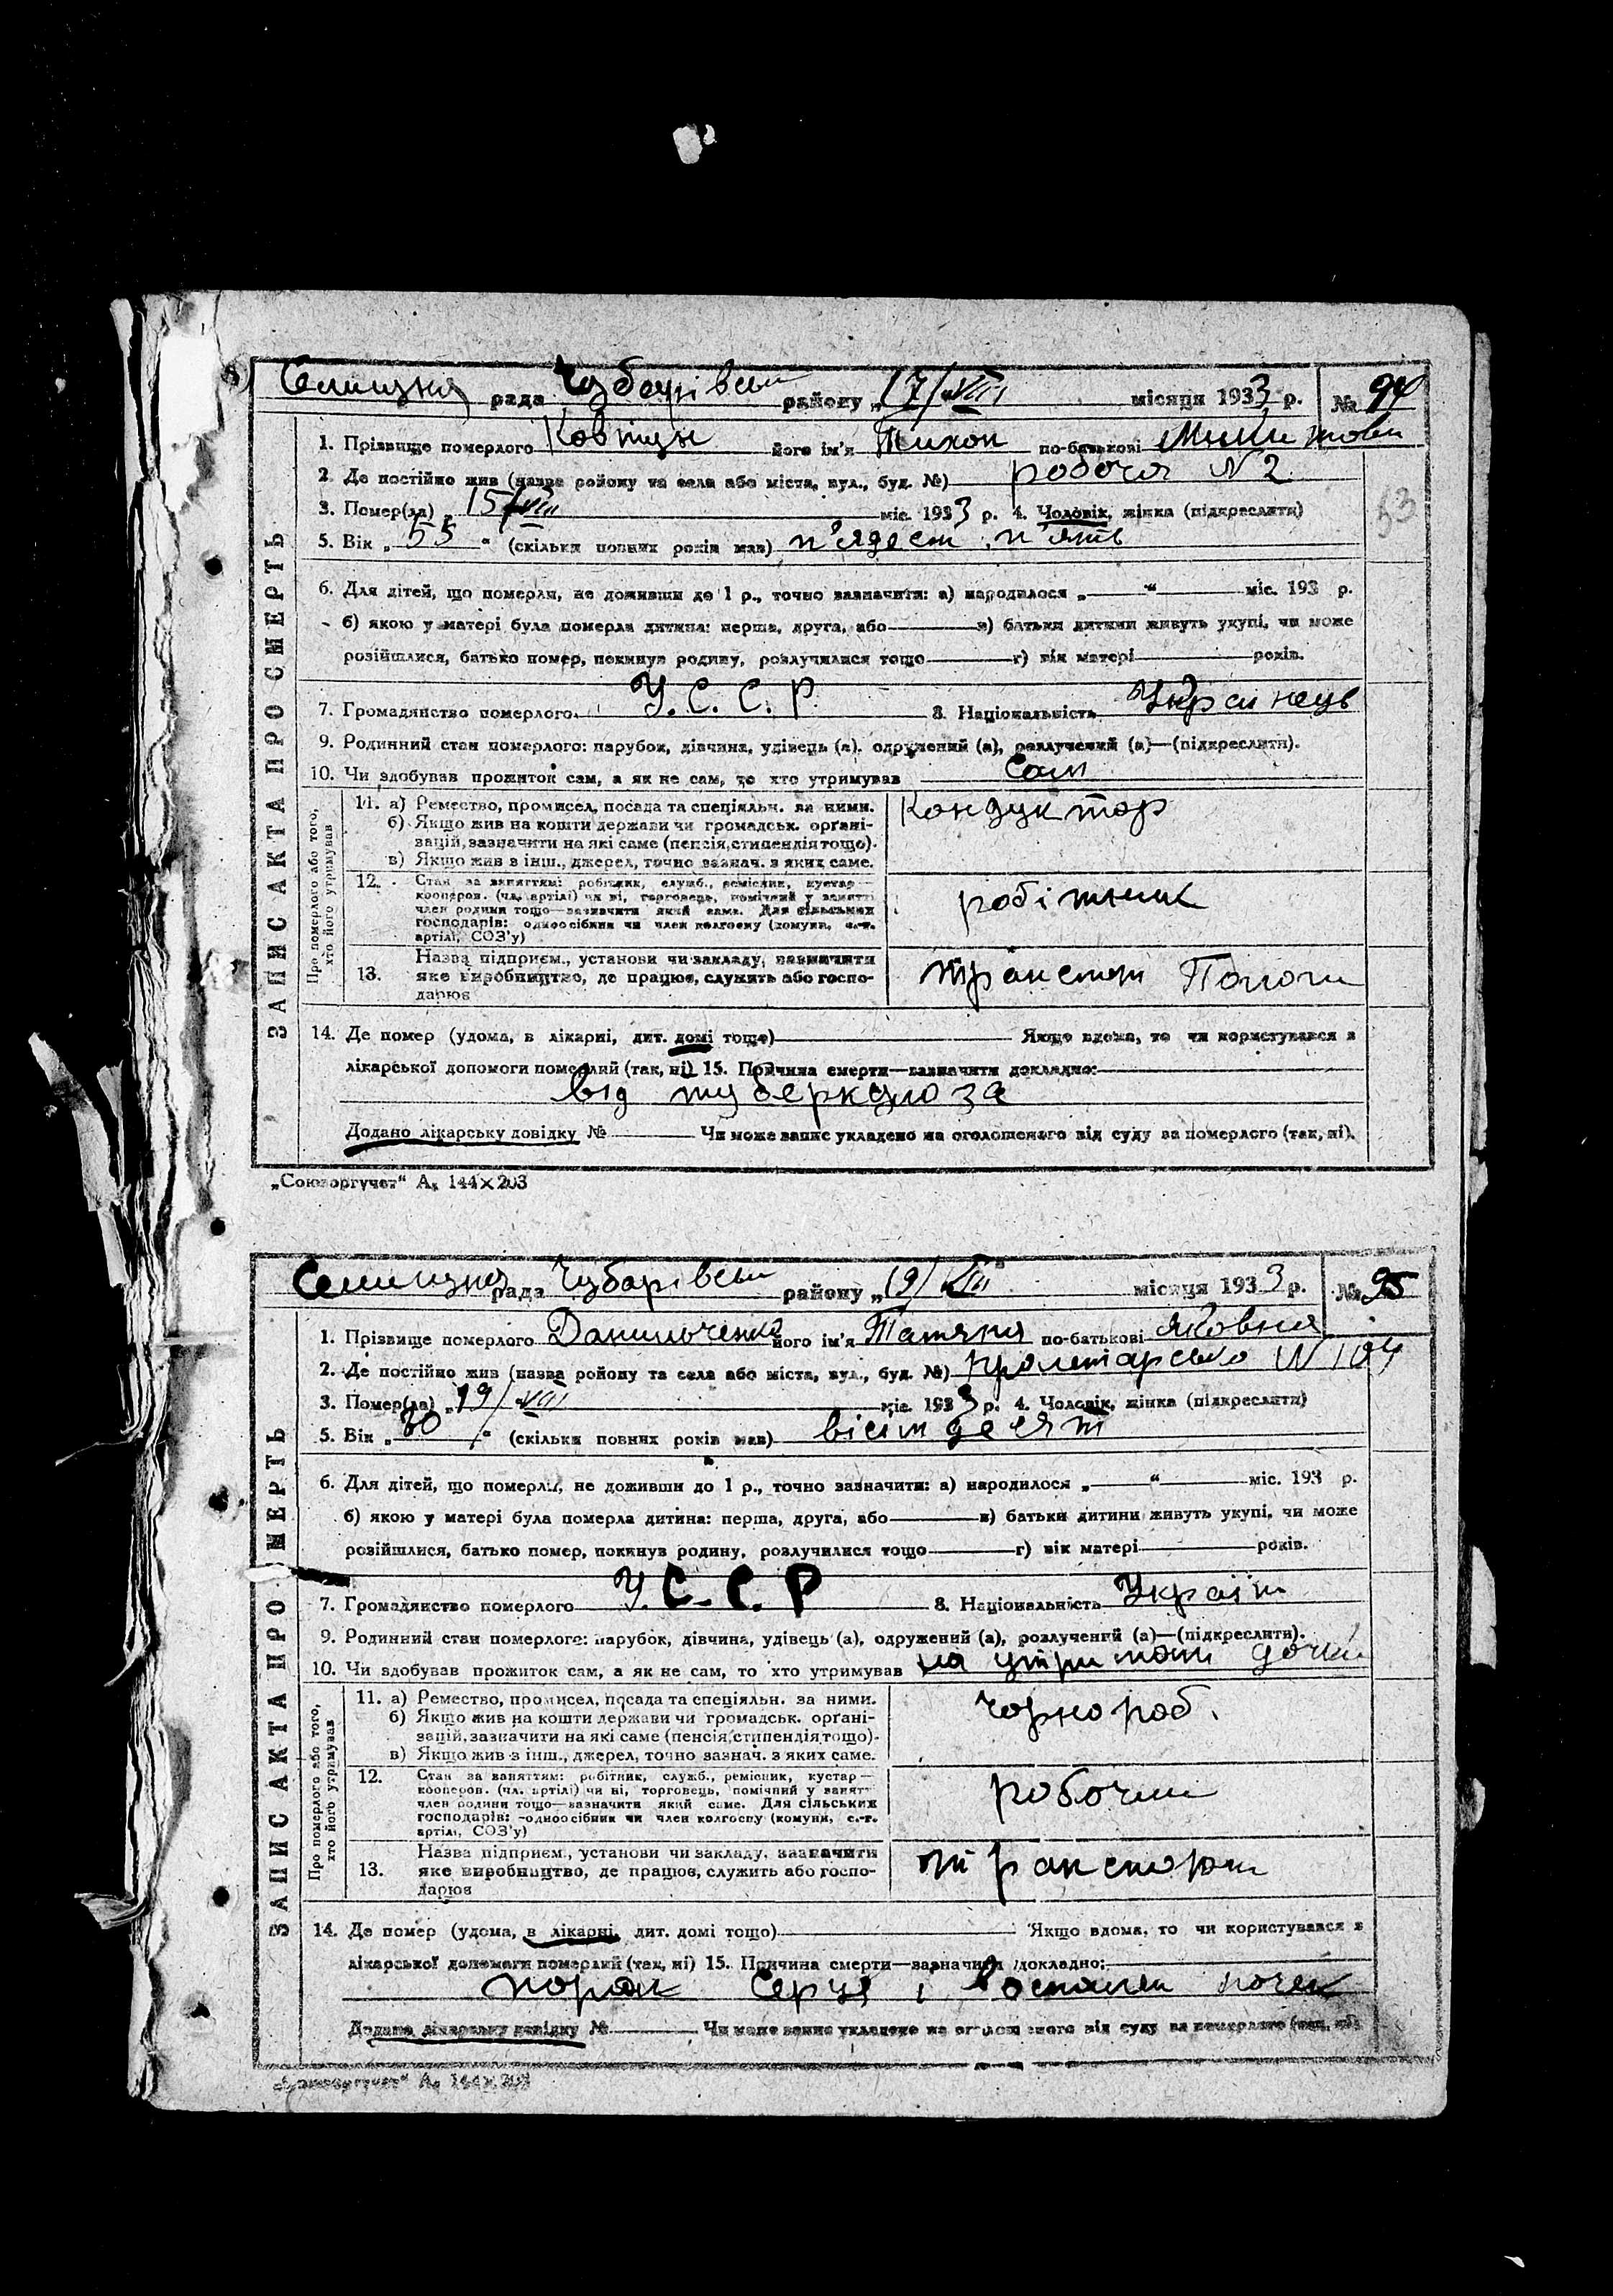 Селищна рада Чубарівськ району „17/VIII місяця 1933 р. № 94
1. Прізвище померлого його ім'я Тихон по-батькові
2. Де постійно жив (назва району та села або міста, вул., буд. №) робоча N 2
3. Помер(ла) „15/VIII міс. 1933 р. 4. Чоловік, жінка (підкреслити)
53
5. Вік „55“ (скільки повних років мав) п'ядесят п'ять
6. Для дітей, що померли, не доживши до 1 р., точно зазначити: а) народилося „ “ міс. 193 р.
б) якою у матері була померла дитина: перша, друга, або в) батьки дитини живуть укупі, чи може
розійшлися, батько помер, покинув родину, розлучилися тощо г) вік матері років.
7. Громадянство померлого У.С.С.Р. 8. Національність Українець
9. Родинний стан померлого: парубок, дівчина, удівець (а), одружений (а), розлучений (а)—(підкреслити).
10. Чи здобував прожиток сам, а як не сам, то хто утримував Сам
ЗАПИС АКТА ПРО СМЕРТЬ
Про померлого або того, хто його утримував
11. а) Ремество, промисел, посада та спеціяльн. за ними. Кондуктор
б) Якщо жив на кошти держави чи громадськ. органі-
зацій, зазначити на які саме (пенсія, стипендія тощо).
в) Якщо жив з інш., джерел, точно зазнач. з яких саме.
12. Стан за заняттям: робітник, служб., ремісник, кустар— робітник
кооперов. (чл. артілі) чи ні, торговець, помічний у занятті
член родини тощо—зазначити який саме. Для сільських
господарів: одноосібник чи член колгоспу (комуни, с.-г.
артілі, СОЗ'у)
13. Назва підприєм., установи чи закладу, зазначити
яке виробництво, де працює, служить або госпо- транспорт Пологи
дарює
14. Де помер (удома, в лікарні, дит. домі тощо) Якщо вдома, то чи користувався з
лікарської допомоги померлий (так, ні) 15. Причина смерти—зазначити докладно:
від туберкульоза
Додано лікарську довідку № Чи може запис укладено на оголошеного від суду за померлого (так, ні).
„Союзоргучет“ А₅ 144×203
Селищна рада Чубарівськ району „19/VIII місяця 1933 р. № 95
1. Прізвище померлого Данильченко його ім'я Татяна по-батькові Яковна
2. Де постійно жив (назва району та села або міста, вул., буд. №) пролетарсько N 104
3. Помер(ла) „19/VIII міс. 1933 р. 4. Чоловік, жінка (підкреслити)
5. Вік „80“ (скільки повних років мав) вісімдесят
6. Для дітей, що померли, не доживши до 1 р., точно зазначити: а) народилося „ “ міс. 193 р.
б) якою у матері була померла дитина: перша, друга, або в) батьки дитини живуть укупі, чи може
розійшлися, батько помер, покинув родину, розлучилися тощо г) вік матері років.
7. Громадянство померлого У.С.С.Р 8. Національність
9. Родинний стан померлого: парубок, дівчина, удівець (а), одружений (а), розлучений (а)—(підкреслити).
10. Чи здобував прожиток сам, а як не сам, то хто утримував на утриманi дочки
ЗАПИС АКТА ПРО СМЕРТЬ
Про померлого або того, хто його утримував
11. а) Ремество, промисел, посада та спеціяльн. за ними. чорнороб.
б) Якщо жив на кошти держави чи громадськ. органі-
зацій, зазначити на які саме (пенсія, стипендія тощо).
в) Якщо жив з інш., джерел, точно зазнач. з яких саме.
12. Стан за заняттям: робітник, служб., ремісник, кустар— робочий
кооперов. (чл. артілі) чи ні, торговець, помічний у занятті
член родини тощо—зазначити який саме. Для сільських
господарів: одноосібник чи член колгоспу (комуни, с.-г.
артілі, СОЗ'у)
13. Назва підприєм., установи чи закладу, зазначити
яке виробництво, де працює, служить або госпо- транспорт
дарює
14. Де помер (удома, в лікарні, дит. домі тощо) Якщо вдома, то чи користувався з
лікарської допомоги померлий (так, ні) 15. Причина смерти—зазначити докладно:
порок серця і воспален почек
Додано лікарську довідку № Чи може запис укладено на оголошеного від суду за померлого (так, ні).
„Союзоргучет“ А₅ 144×203